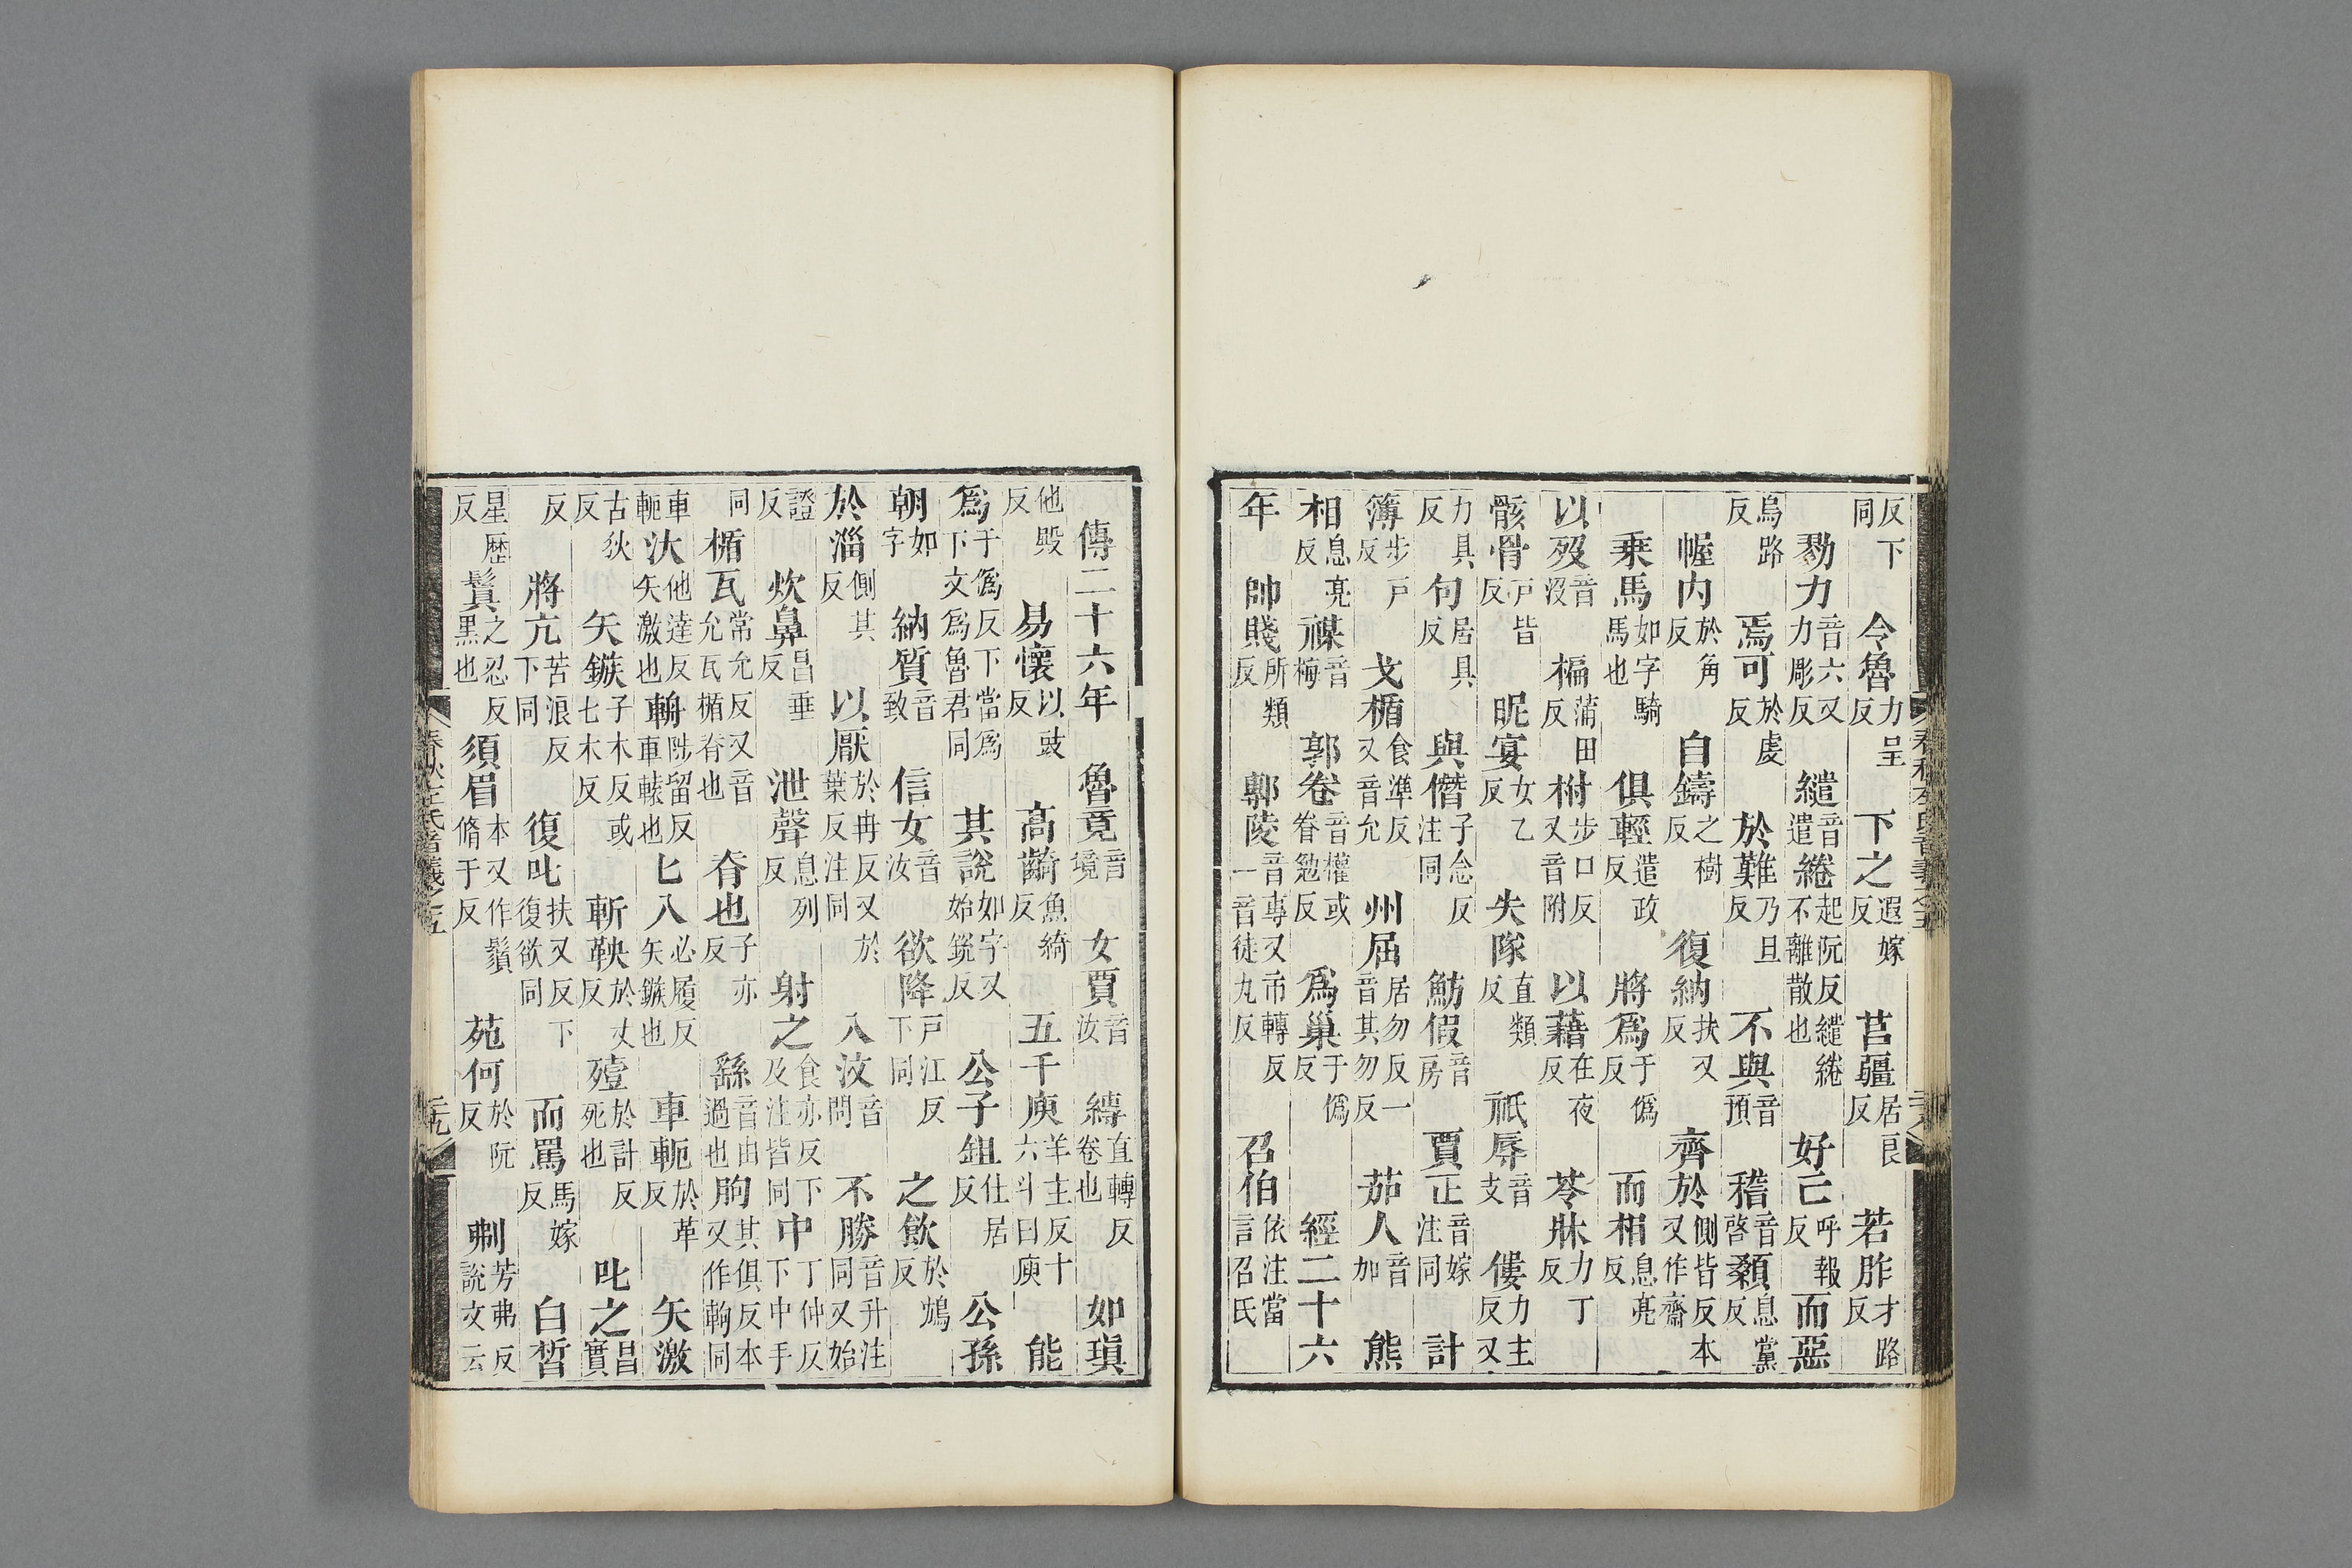 反下同 令魯力呈反 下之遐嫁反 莒疆居良反 若胙才路反
勠力音六又力彫反 繾音遣 綣起阮反繾綣不離散也 好已呼報反 而惡
烏路反 焉可於虔反 於難乃旦反 不與音預 稽音啓 顙息黨反
幄内於角反 自鑄之樹反 復納扶又反 齊於側皆反本又作齋
乗馬如字騎馬也 俱輕遣政反 將爲于僞反 而相息亮反
以歿音沒 楄蒲田反 柎步口反又音附 以藉在夜反 苓牀力丁反
骸骨戸皆反 昵宴女乙反 失隊直類反 祇辱音支 僂力主反又
力具反 句居具反 與僭子念反注同 魴假音房 賈正音嫁注同 計
簿步戸反 戈楯食準反又音允 州屈居勿反一音其勿反 茄人音加 熊
相息亮反 禖音梅 郭卷音權或眷勉反 爲巢于僞反 經二十六
年 帥賤所類反 鄟陵音專又市轉反一音徒丸反 召伯依注當言召氏
傳二十六年 魯竟音境 女賈音汝 縳直轉反卷也 如瑱
他殿反 易懷以豉反 高齮魚綺反 五千庾羊主反十六斗曰庾 能
爲于僞反下當爲下文爲魯君同 其說如字又始銳反 公子鉏仕居反 公孫
朝如字 納質音致 信女音汝 欲降戸江反下同 之飲於鴆反
於淄側其反 以厭於冉反又於葉反注同 入汶音問 不勝音升注同又始
證反 炊鼻昌垂反 泄聲息列反 射之食亦反下及注皆同 中丁仲反下中手
同 楯瓦常允反又音允瓦楯脊也 脊也子亦反 繇音由過也 朐其俱反本又作軥同
車軛 汰他達反矢激也 輈陟留反車轅也 匕入必履反矢鏃也 車軛於革反 矢激
古狄反 矢鏃子木反或七木反 斬鞅於丈反 殪於計反死也 叱之昌實
反 將亢苦浪反下同 復叱扶又反下復欲同 而罵馬嫁反 白皙
星歷反 鬒之忍反黑也 須眉本又作鬚脩于反 苑何於阮反 㓟芳弗反說文云